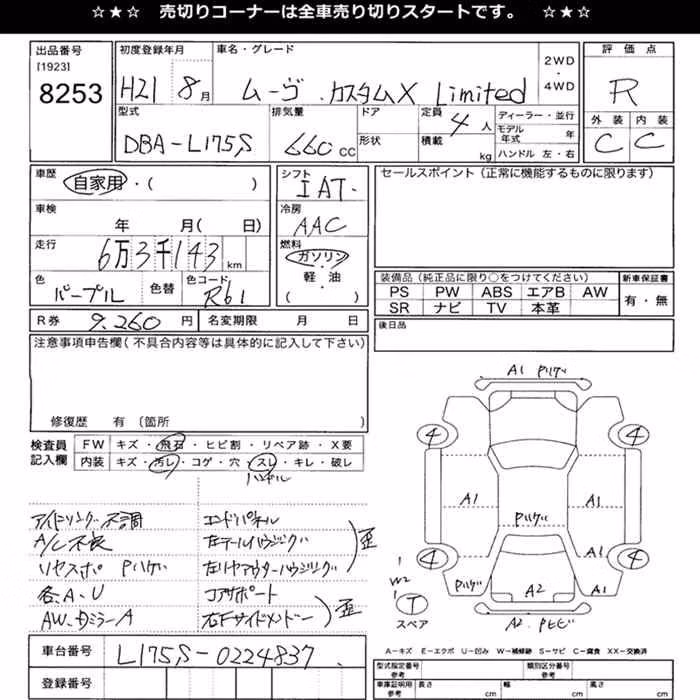 ☆★☆ 売切りコーナーは全車売り切りスタートです。 ☆★☆
出品番号 [1923] 8253
初度登録年月 H21 8月
車名・グレード ムーヴ カスタムX Limited
2WD・4WD
評価点 R
外装 C 内装 C
型式 DBA-L175S
排気量 660 cc
ドア 形状
定員 4人 積載 kg
ディーラー・並行
モデル年式 年
ハンドル 左・右
車歴 自家用・( )
車検 年 月( 日)
走行 6万3千143 km
色 パープル 色替 色コード R61
シフト IAT
冷房 AAC
燃料 ガソリン・軽油 ( )
セールスポイント(正常に機能するものに限ります)
装備品(純正品に限り○をつけてください) 新車保証書
PS PW ABS エアB AW 有・無
SR ナビ TV 本革
R券 9,260 円 名変期限 月 日
後日品
注意事項申告欄(不具合内容等は具体的に記入して下さい)
修復歴 有(箇所 )
検査員記入欄 FW キズ・飛石・ヒビ割・リペア跡・X要
内装 キズ・汚レ・コゲ・穴・スレ・キレ・破レ
ハンドル
アイドリング不調 エンドパネル
A/C不良 左テールハウジング
リヤスポ Pハゲ 左リヤアウターハウジング 歪
各A・U コアサポート
AW、ドミラーA 右Fサイドメンバー 歪
A1 Pハゲ
4 4
A1 A1
Pハゲ
A1
4 4
W2
Pハゲ A2 A1
T
スペア
A2 Pヒビ
A=キズ E=エクボ U=凹み W=補修跡 S=サビ C=腐食 XX=交換済
車台番号 L175S-0224837
登録番号
型式指定番号 参考 類別区分番号 参考
車庫証明用 参考 長さ cm 幅 cm 高さ cm